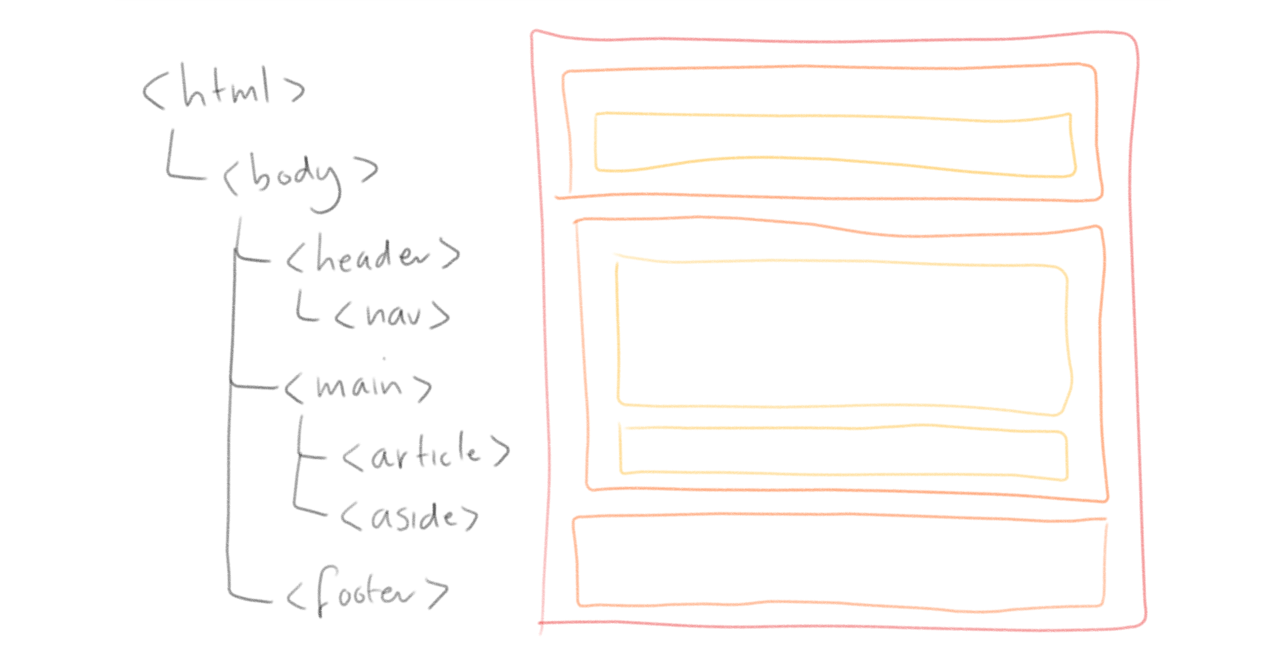 <html>
<body>
<header>
<nav>
<main>
<article>
<aside>
<footer>